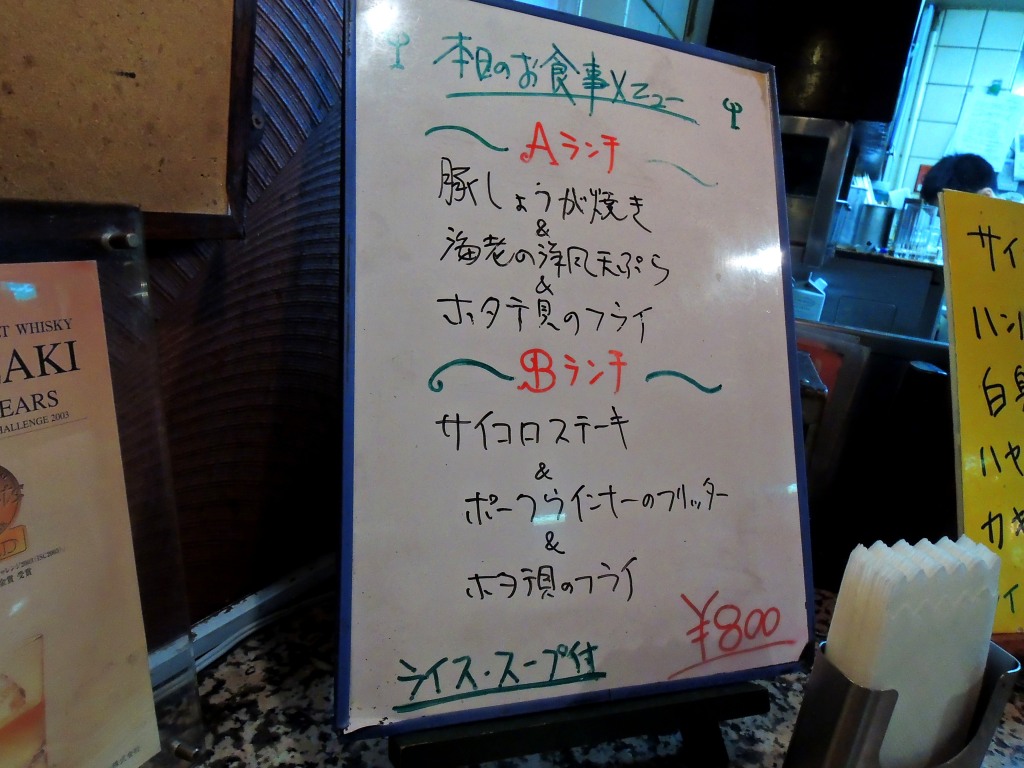 本日のお食事メニュー
Aランチ
豚しょうが焼き
&
海老の洋風天ぷら
&
ホタテ貝のフライ
Bランチ
サイコロステーキ
&
ポークウインナーのフリッター
&
ホタテ貝のフライ
¥800
ライス・スープ付
WHISKY
AKI
EARS
HALLENGE 2003
サイ
ハン
白身
ハヤ
カキ